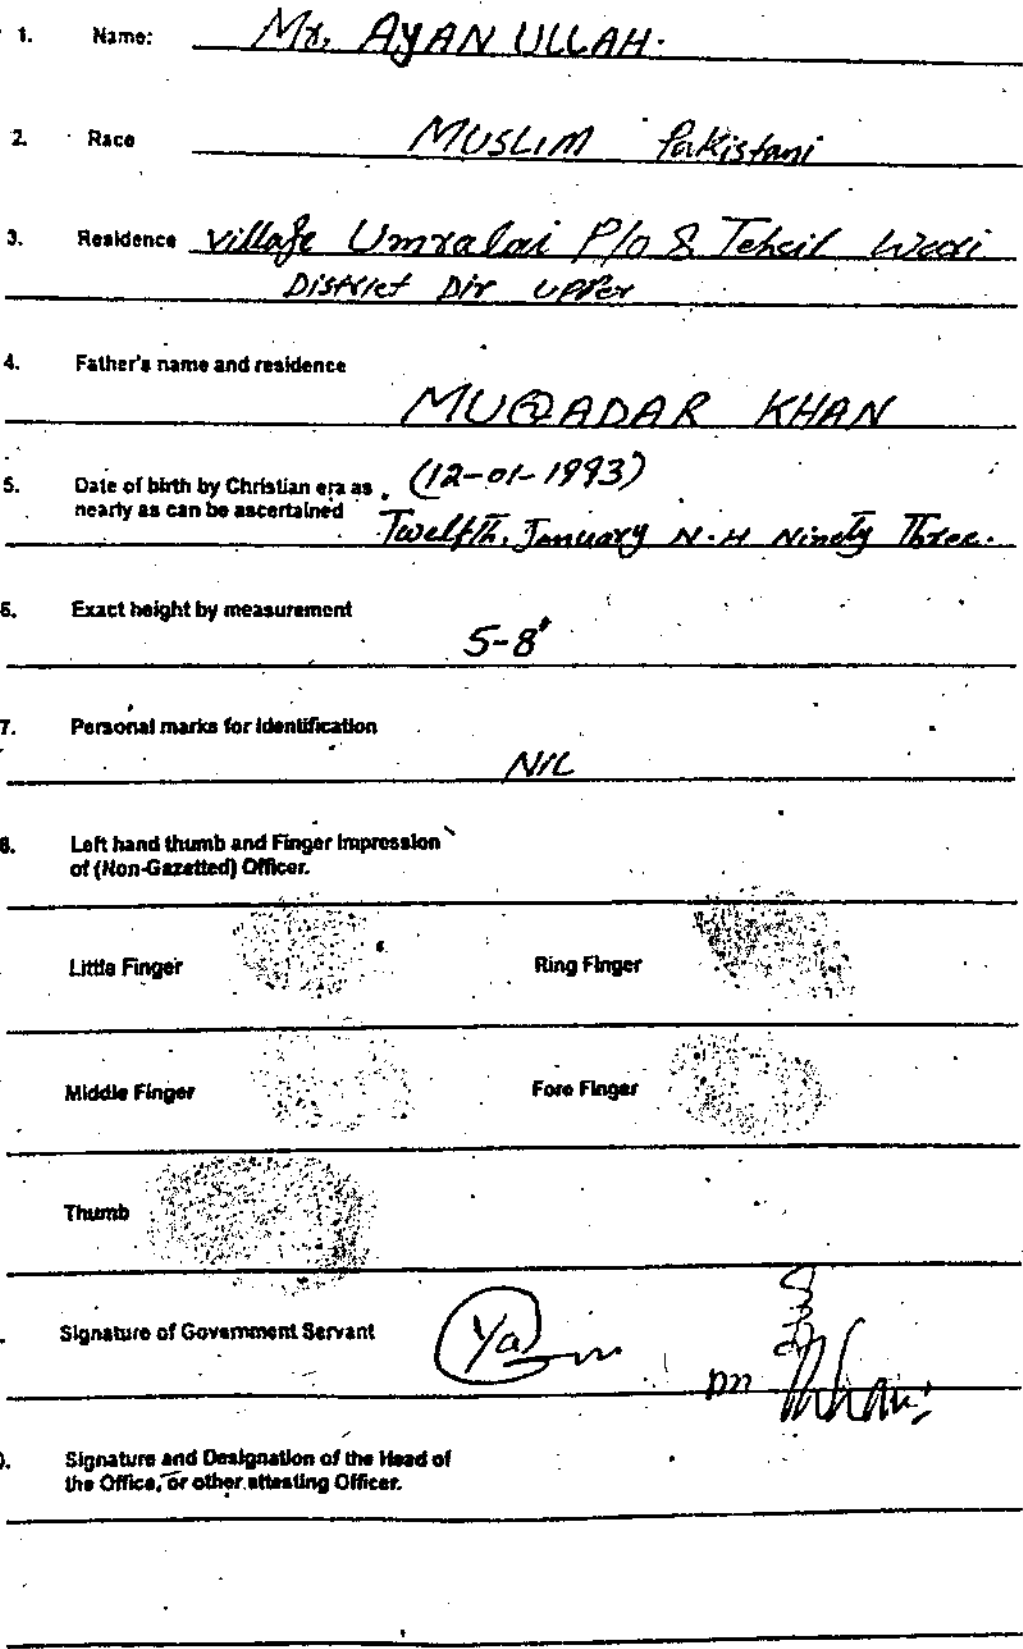 1. Name: Mr, AYAN ULLAH.
2. Race MUSLIM Pakistani
3. Residence Village Umralai P/o & Tehsil Wari
District Dir upper
4. Father's name and residence
MUQADAR KHAN
5. Date of birth by Christian era as (12-01-1993)
nearly as can be ascertained Twelfth, January N.H Ninety Three.
6. Exact height by measurement
5-8"
7. Personal marks for identification
NIL
8. Left hand thumb and Finger impression
of (Non-Gazetted) Officer.
Little Finger Ring Finger
Middle Finger Fore Finger
Thumb
Signature of Government Servant
Signature and Designation of the Head of
the Office, or other attesting Officer.